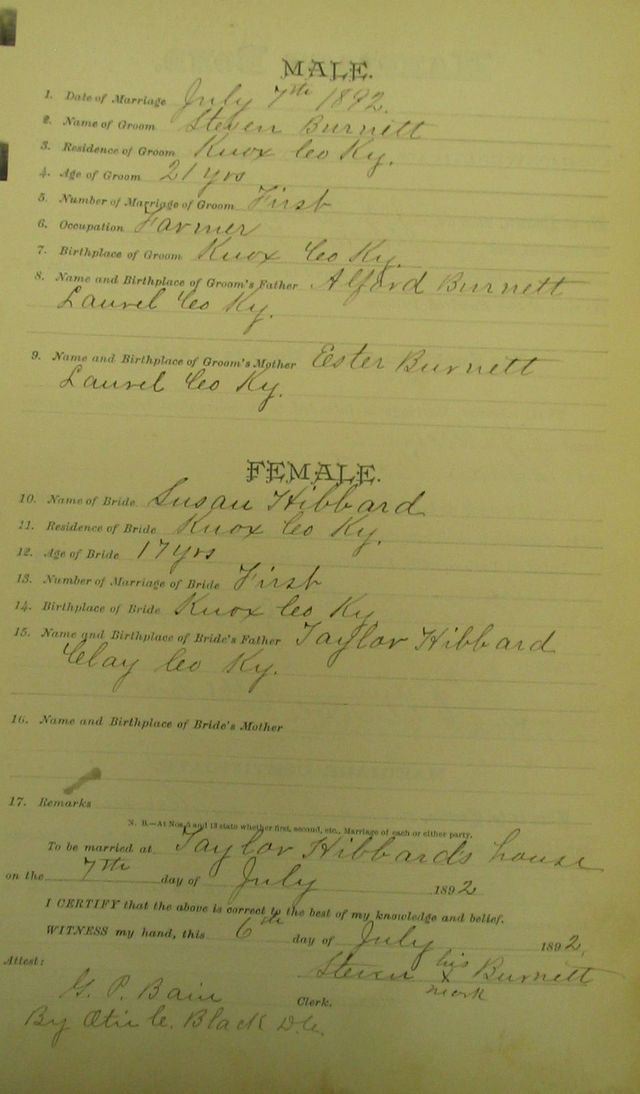 MALE.
1. Date of Marriage July 7th 1892.
2. Name of Groom Steven Burnett
3. Residence of Groom Knox Co Ky.
4. Age of Groom 21 yrs
5. Number of Marriage of Groom First
6. Occupation Farmer
7. Birthplace of Groom Knox Co Ky.
8. Name and Birthplace of Groom's Father Alford Burnett
Laurel Co Ky.
9. Name and Birthplace of Groom's Mother Ester Burnett
Laurel Co Ky.
FEMALE.
10. Name of Bride Susan Hibbard
11. Residence of Bride Knox Co Ky.
12. Age of Bride 17 yrs
13. Number of Marriage of Bride First
14. Birthplace of Bride Knox Co Ky
15. Name and Birthplace of Bride's Father Taylor Hibbard
Clay Co Ky.
16. Name and Birthplace of Bride's Mother
17. Remarks
N. B.—At Nos. 5 and 13 state whether first, second, etc., Marriage of each or either party.
To be married at Taylor Hibbards house
on the 7th day of July 1892
I CERTIFY that the above is correct to the best of my knowledge and belief.
WITNESS my hand, this 6th day of July 1892.
Attest: Steven his X mark Burnett
G. P. Bain Clerk.
By Otis C. Black D.C.